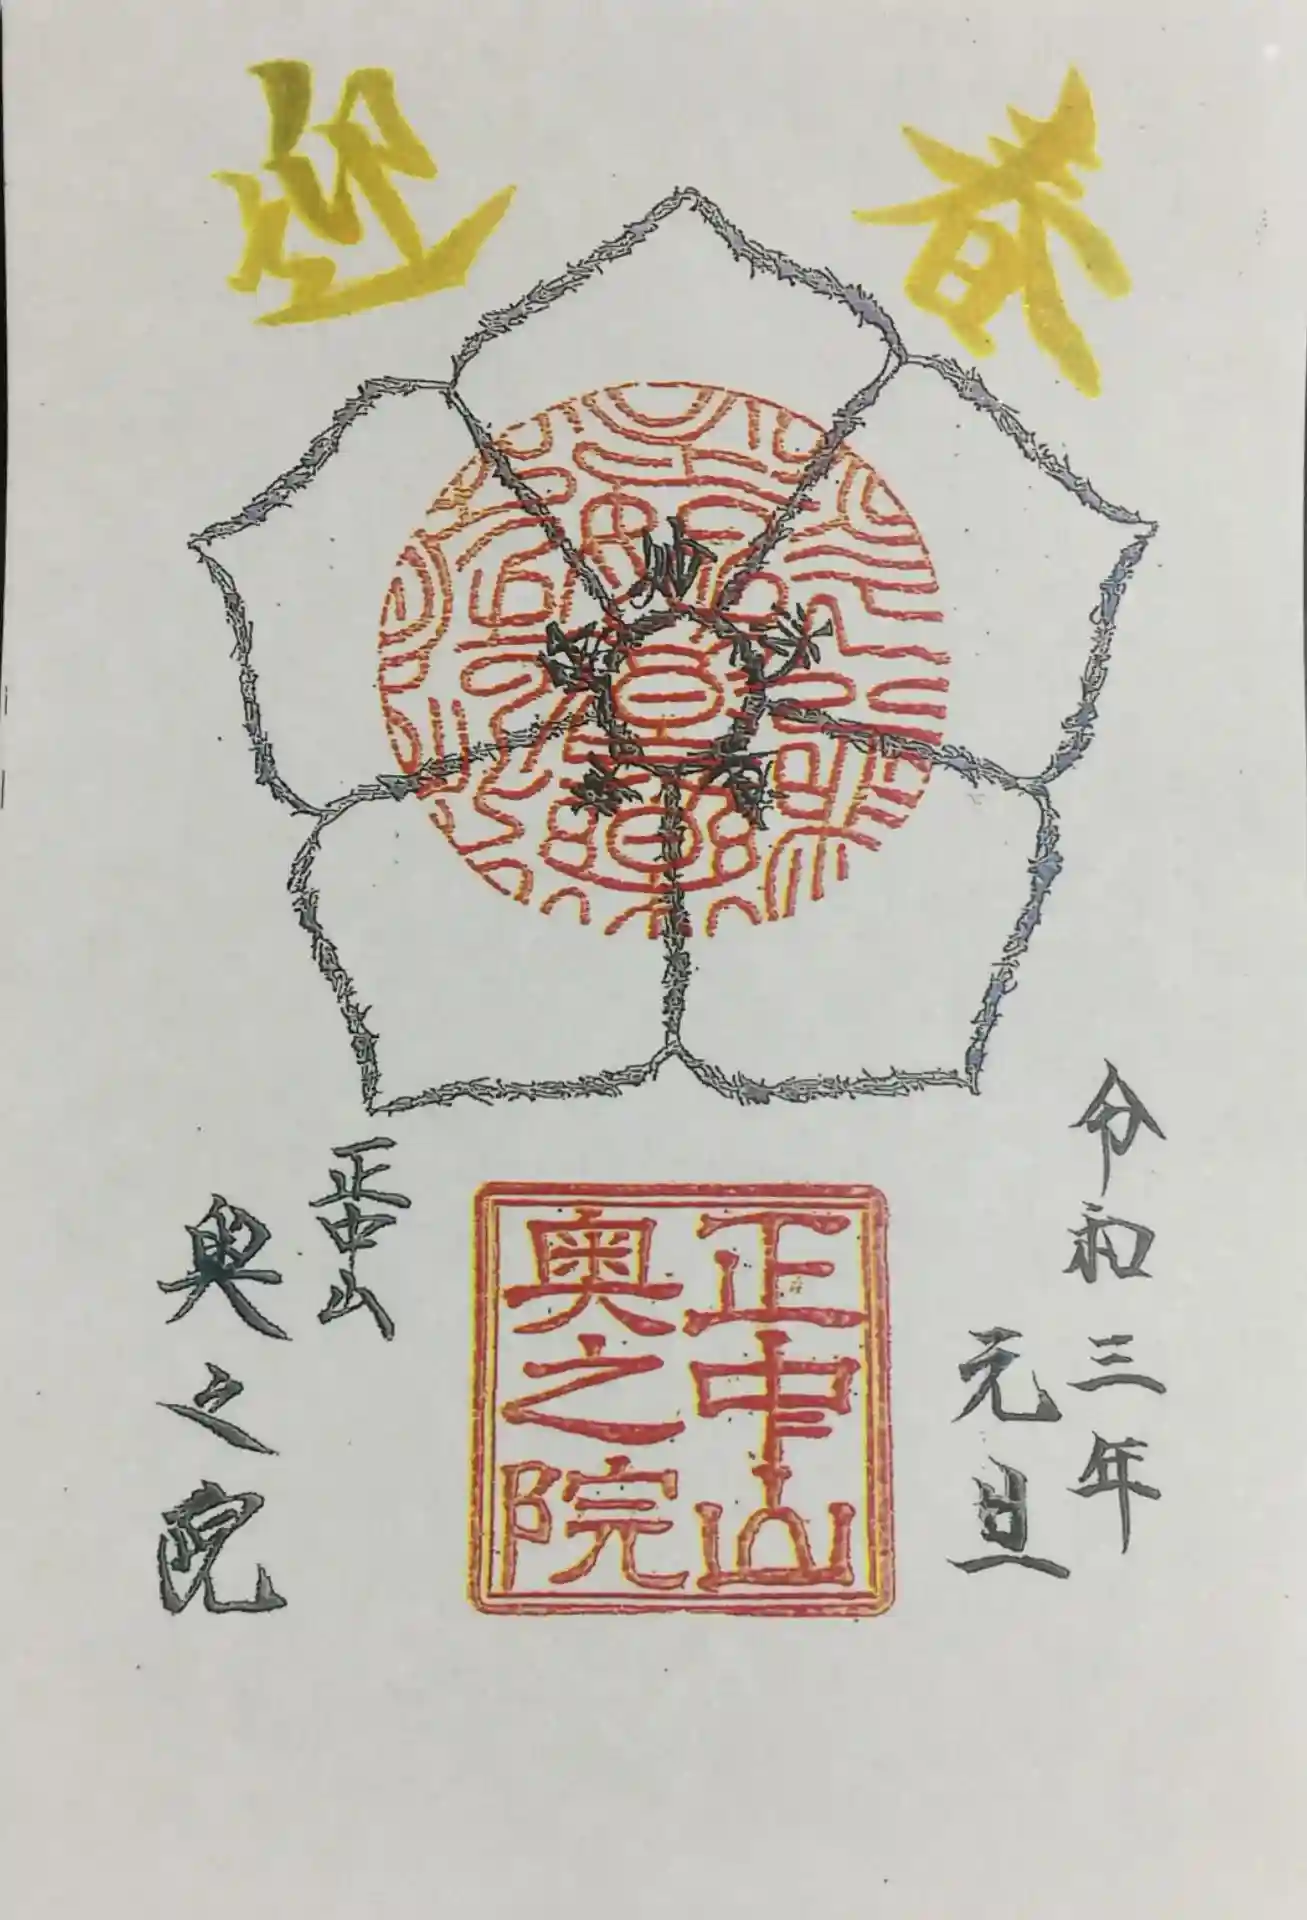 迎
春
令和三年
元旦
正中山
奥之院
正中山
奥之院